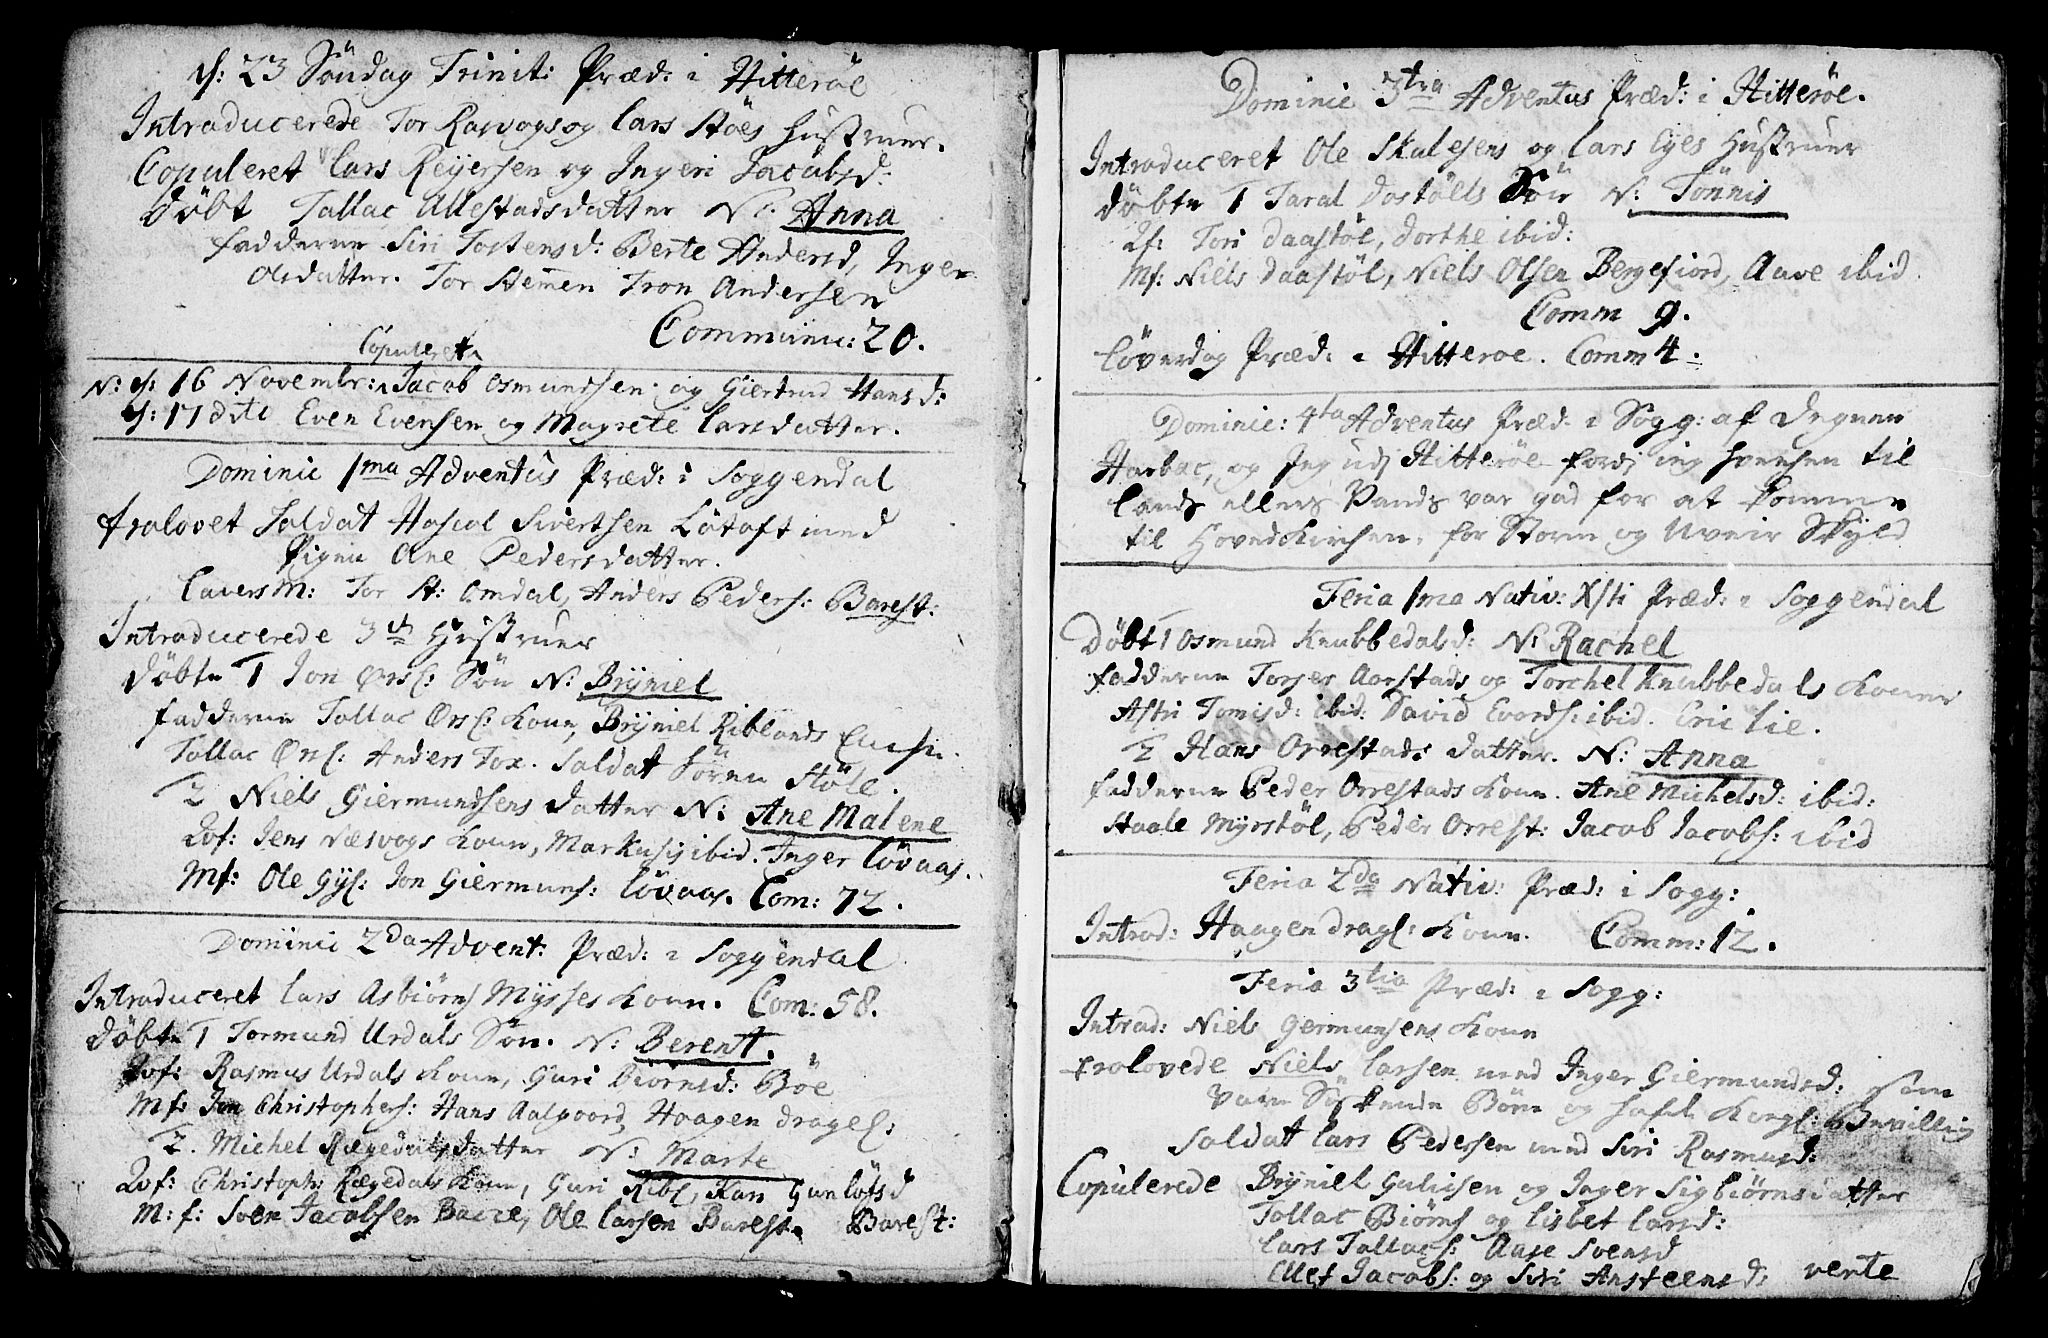 d: 23 Söndag Trinit: Præd: i Hitteröe
Introducerede Tor Rasvogs og Lars Stöes Hustruer.
Copuleret Lars Reyersen og Ingeri Jacobsd:
Döbt Tallac Ullestads datter N: Anna
fadderne Siri Tostensd: Berte Andersd, Inger
Olsdatter. Tor Stemen Tron Andersen
Communic: 20.
Copuleret
N: d: 16 Novembr: Jacob Osmundsen og Giertrud Hansd:
d: 17 dito Even Evensen og Magrete Larsdatter.
Dominic 1ma Adventus Præd: i Soggendal
trolovet Soldat Hascol Sivertsen Lötoft med
Pigen Ane Pedersdatter.
Caversm: Tor St: Omdal, Anders Peders: Barest:
Introducerede 3de Hustruer
Döbte 1 Jon Ørs: Sön N: Bryniel
fadderne Tallac Ørs: Kone, Bryniel Riblands
Tallac Ørs: Anders Tox. Soldat Sören Stöle.
2 Niels Giermundsens datter N: Ane Malene
Qvf: Jens Næsvogs Kone, Markusis ibid. Inger Lövaas.
Mf: Ole Gys: Jon Giermuns: Lövaas. Com: 72.
Dominic 2da Advent: Præd: i Soggendal
Introduceret Lars Asbiörns Mysses Kone. Com: 58.
Döbte 1 Tormund Urdals Sön. N: Berent.
Qvf: Rasmus Urdals Kone, Guri Biörnsd: Böe
Mf: Jon Christophers: Hans Aalgaord, Haagen Drages:
2. Michel Rægedals datter N: Marte
Qvf: Christoph: Rægedals Kone, Guri Ribl, Kari Gunlöfsd
M: f: Sven Jacobsen Bacce, Ole Larsen Barest. Barest:
Dominic 3tia Adventus Præd: i Hitteröe.
Introduceret Ole Skalesens og Lars Eyes Hustruer
döbte 1 Taral Dostöels Sön N: Tönnis
Qf: Tori Daastöl, Dorthe ibid:
Mf: Niels Daastöl, Niels Olsen Bergefiord, Aave ibid
Comm 9.
Löverdag Præd: i Hitteroe. Comm 4.
Dominic: 4ta Adventus Præd. i Sogg: af Degnen
Harbac, og Jeg udj Hitteröe fordj ieg hverchen til
Lands ellers Vands var god for at komme
til Hovedkirchen, for Storm og Uveir Skyld
Feria 1ma Nativ: Xsti Præd: i Soggendal
Döbt 1 Osmund Knubbedalsd: N: Rachel
fadderne Torger Aarstads og Torchel Knubbedals Koner
Astri Tomisd: ibid: David Evords: ibid. Eric Lie.
2 Hans Orrestads datter. N: Anna
fadderne Peder Orrestads Kone. Ane Michelsd: ibid:
Staale Myrstöl, Peder Orrest: Jacob Jacobs: ibid
Feria 2da Nativ: Præd: i Sogg:
Introd: Haagen Drags: Kone. Comm: 12.
Feria 3tia Præd: i Sogg:
Introd: Niels Germunsens Kone
trolovede Niels Larsen med Inger Giermundsd: som
vare Sösken Börn og hafde Kongl: Bevilling
Soldat Lars Pedersen med Siri Rasmusd:
Copulerede Bryniel Gulicsen og Inger Sigbiörnsdatter
Tallac Biörns og Lisbet Larsd:
Lars Tallacs: Aase Svensd
Ellef Jacobs: og Siri Ansteensd: verte